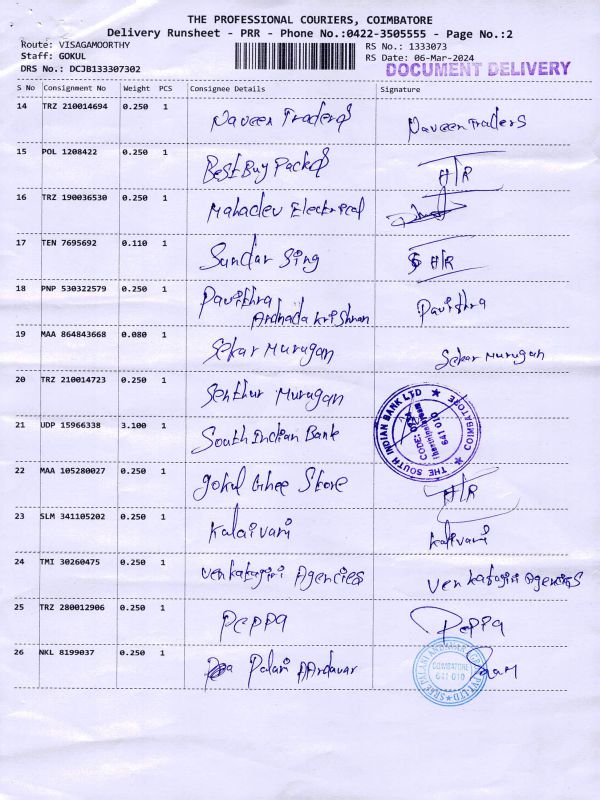 THE PROFESSIONAL COURIERS, COIMBATORE
Delivery Runsheet - PRR - Phone No.:0422-3505555 - Page No.:2
Route: VISAGAMOORTHY
Staff: GOKUL
DRS No.: DCJB133307302
RS No.: 1333073
RS Date: 06-Mar-2024
DOCUMENT DELIVERY
S No Consignment No Weight PCS Consignee Details Signature
14 TRZ 210014694 0.250 1 Naveen Traders Naveen Traders
15 POL 1208422 0.250 1 Best Buy Packed H/R
16 TRZ 190036530 0.250 1 Mahadev Electrical
17 TEN 7695692 0.110 1 Sundar Sing H/R
18 PNP 530322579 0.250 1 Pavithra Pavithra
Ardhada Krishnan
19 MAA 864843668 0.080 1 Sekar Murugan Sekar Murugan
20 TRZ 210014723 0.250 1 Senthur Murugan
21 UDP 15966338 3.100 1 South Indian Bank
THE SOUTH INDIAN BANK LTD ★ COIMBATORE ★
CODE:
641 010
22 MAA 105280027 0.250 1 Gokul Ghee Store H/R
23 SLM 341105202 0.250 1 Kalaivani Kalivani
24 TMI 30260475 0.250 1 Venkatagiri Agencies Venkatagiri Agencies
25 TRZ 280012906 0.250 1 PEPPA PEPPA
26 NKL 8199037 0.250 1 Palani AArdavar
COIMBATORE
641 010